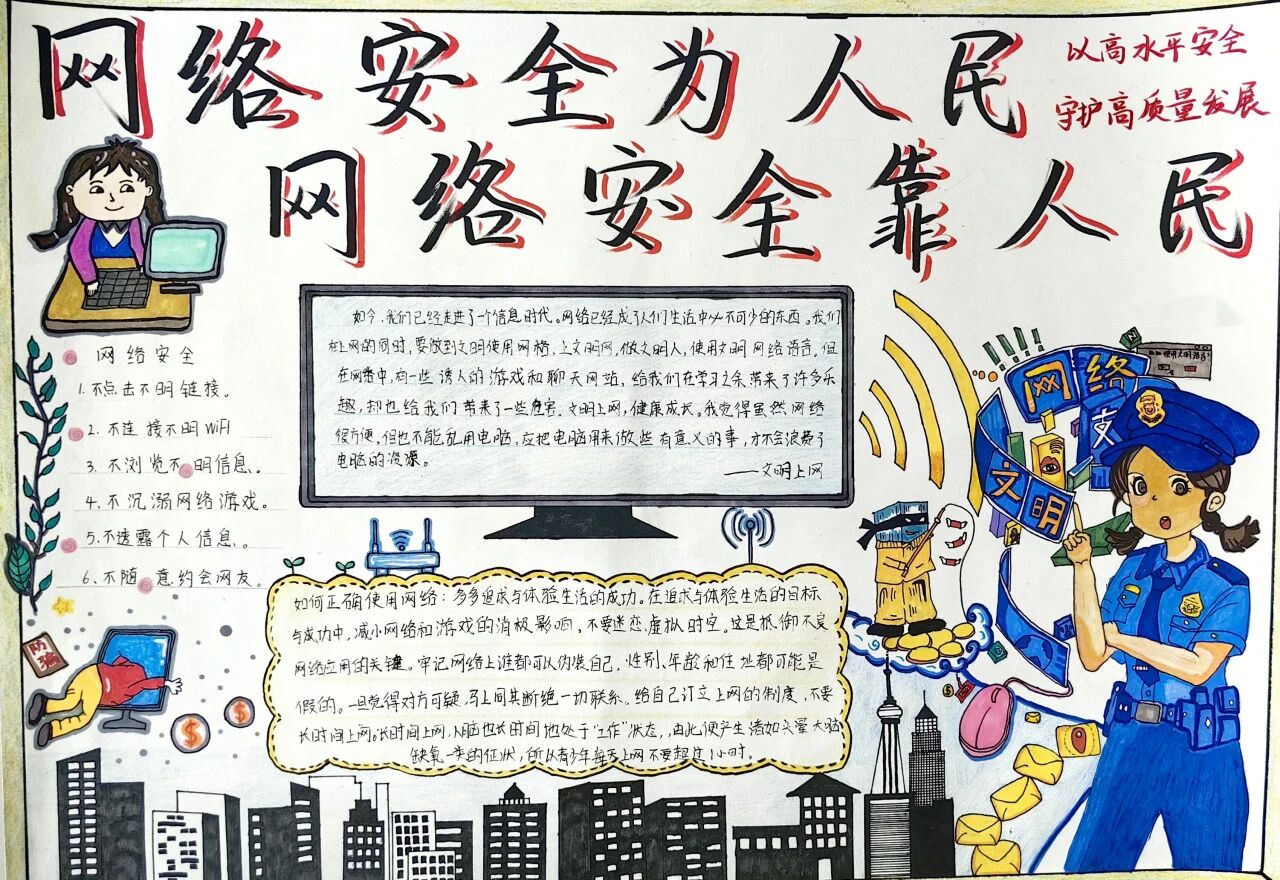 网络安全为人民
以高水平安全
守护高质量发展
网络安全靠人民
网络安全
1.不点击不明链接。
2.不连接不明WiFi
3.不浏览不明信息。
4.不沉溺网络游戏。
5.不透露个人信息。
6.不随意约会网友。
如今,我们已经走进了一个信息时代。网络已经成了人们生活中必不可少的东西。我们
在上网的同时,要做到文明使用网格,上文明网,做文明人,使用文明网络语言,但
在网络中,有一些诱人的游戏和聊天网站,给我们在学习之余带来了许多乐
趣,却也给我们带来了一些危害。文明上网,健康成长。我觉得虽然网络
很方便,但也不能乱用电脑,应把电脑用来做些有意义的事,才不会浪费了
电脑的资源。
——文明上网
网络
支
文明
防骗
如何正确使用网络:多多追求与体验生活的成功。在追求与体验生活的目标
与成功中,减小网络和游戏的消极影响,不要迷恋虚拟时空。这是抵御不良
网络应用的关键。牢记网络上谁都可以伪装自己,性别、年龄和住址都可能是
假的。一旦觉得对方可疑,马上同其断绝一切联系。给自己订立上网的制度,不要
长时间上网。长时间上网,人脑也长时间地处于"工作"状态,由此便产生诸如头晕大脑
缺氧一类的症状,所以青少年每天上网不要超过1小时。